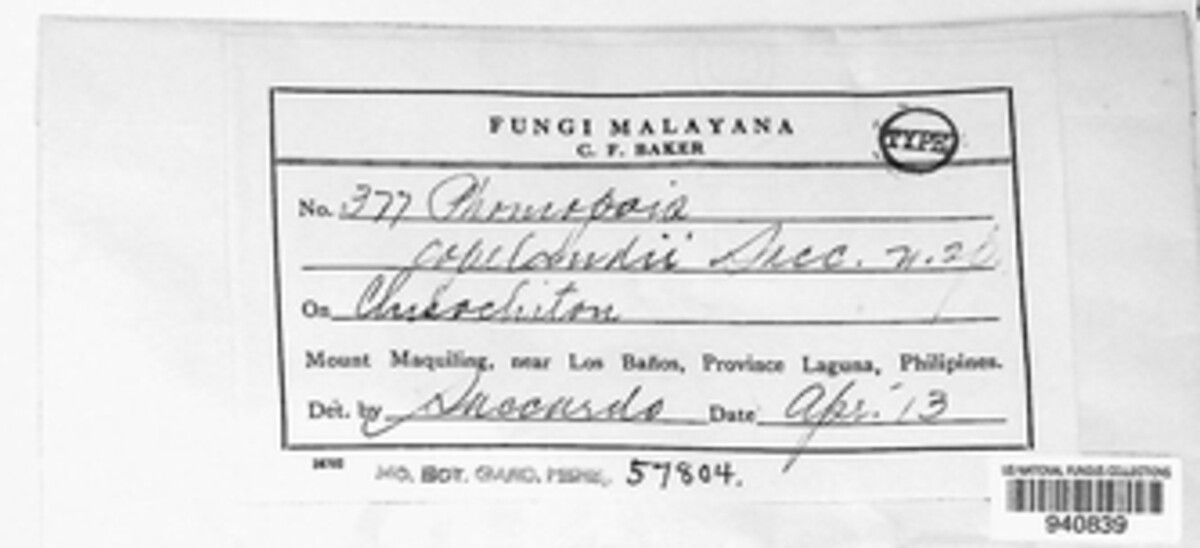 FUNGI MALAYANA
C. F. BAKER
TYPE
No. 377 Phomopsis
copelandii Sacc. n. sp
On Chisochiton
Mount Maquiling, near Los Baños, Province Laguna, Philipines.
Det. by Saccardo Date Apr. '13
MO. BOT. GARD. HERB. 57804.
US NATIONAL FUNGUS COLLECTIONS
940839